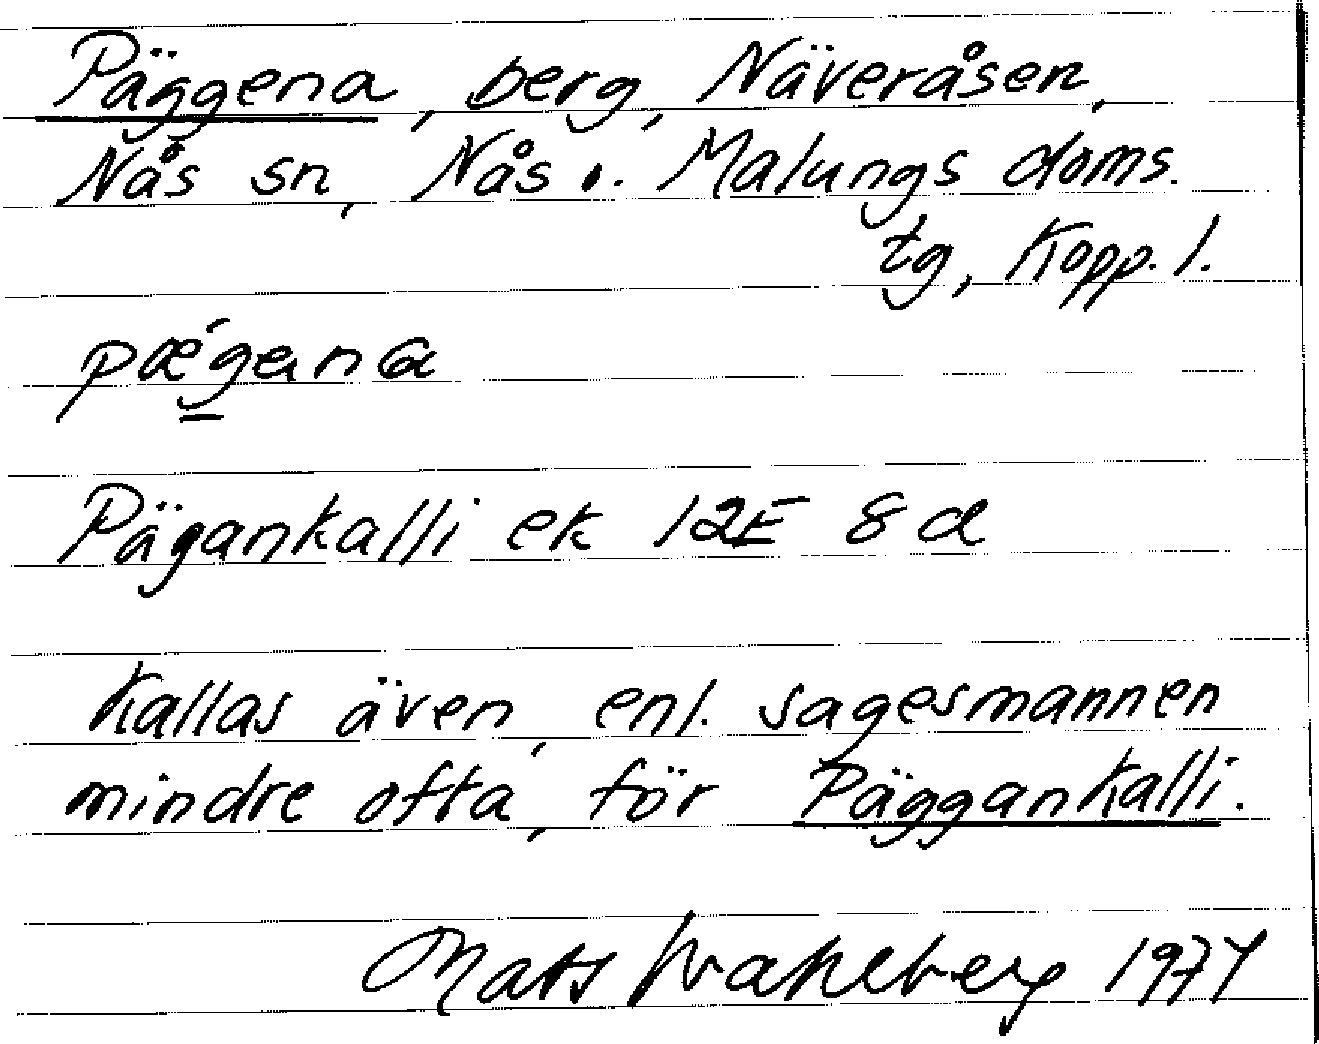 Päggena, berg, Näveråsen,
Nås sn, Nås o. Malungs doms.
tg, Kopp. l.
pǽgena
Pägankalli ek 12E 8d
Kallas även, enl. sagesmannen
mindre ofta, för Päggankalli.
Mats Wahlberg 1974